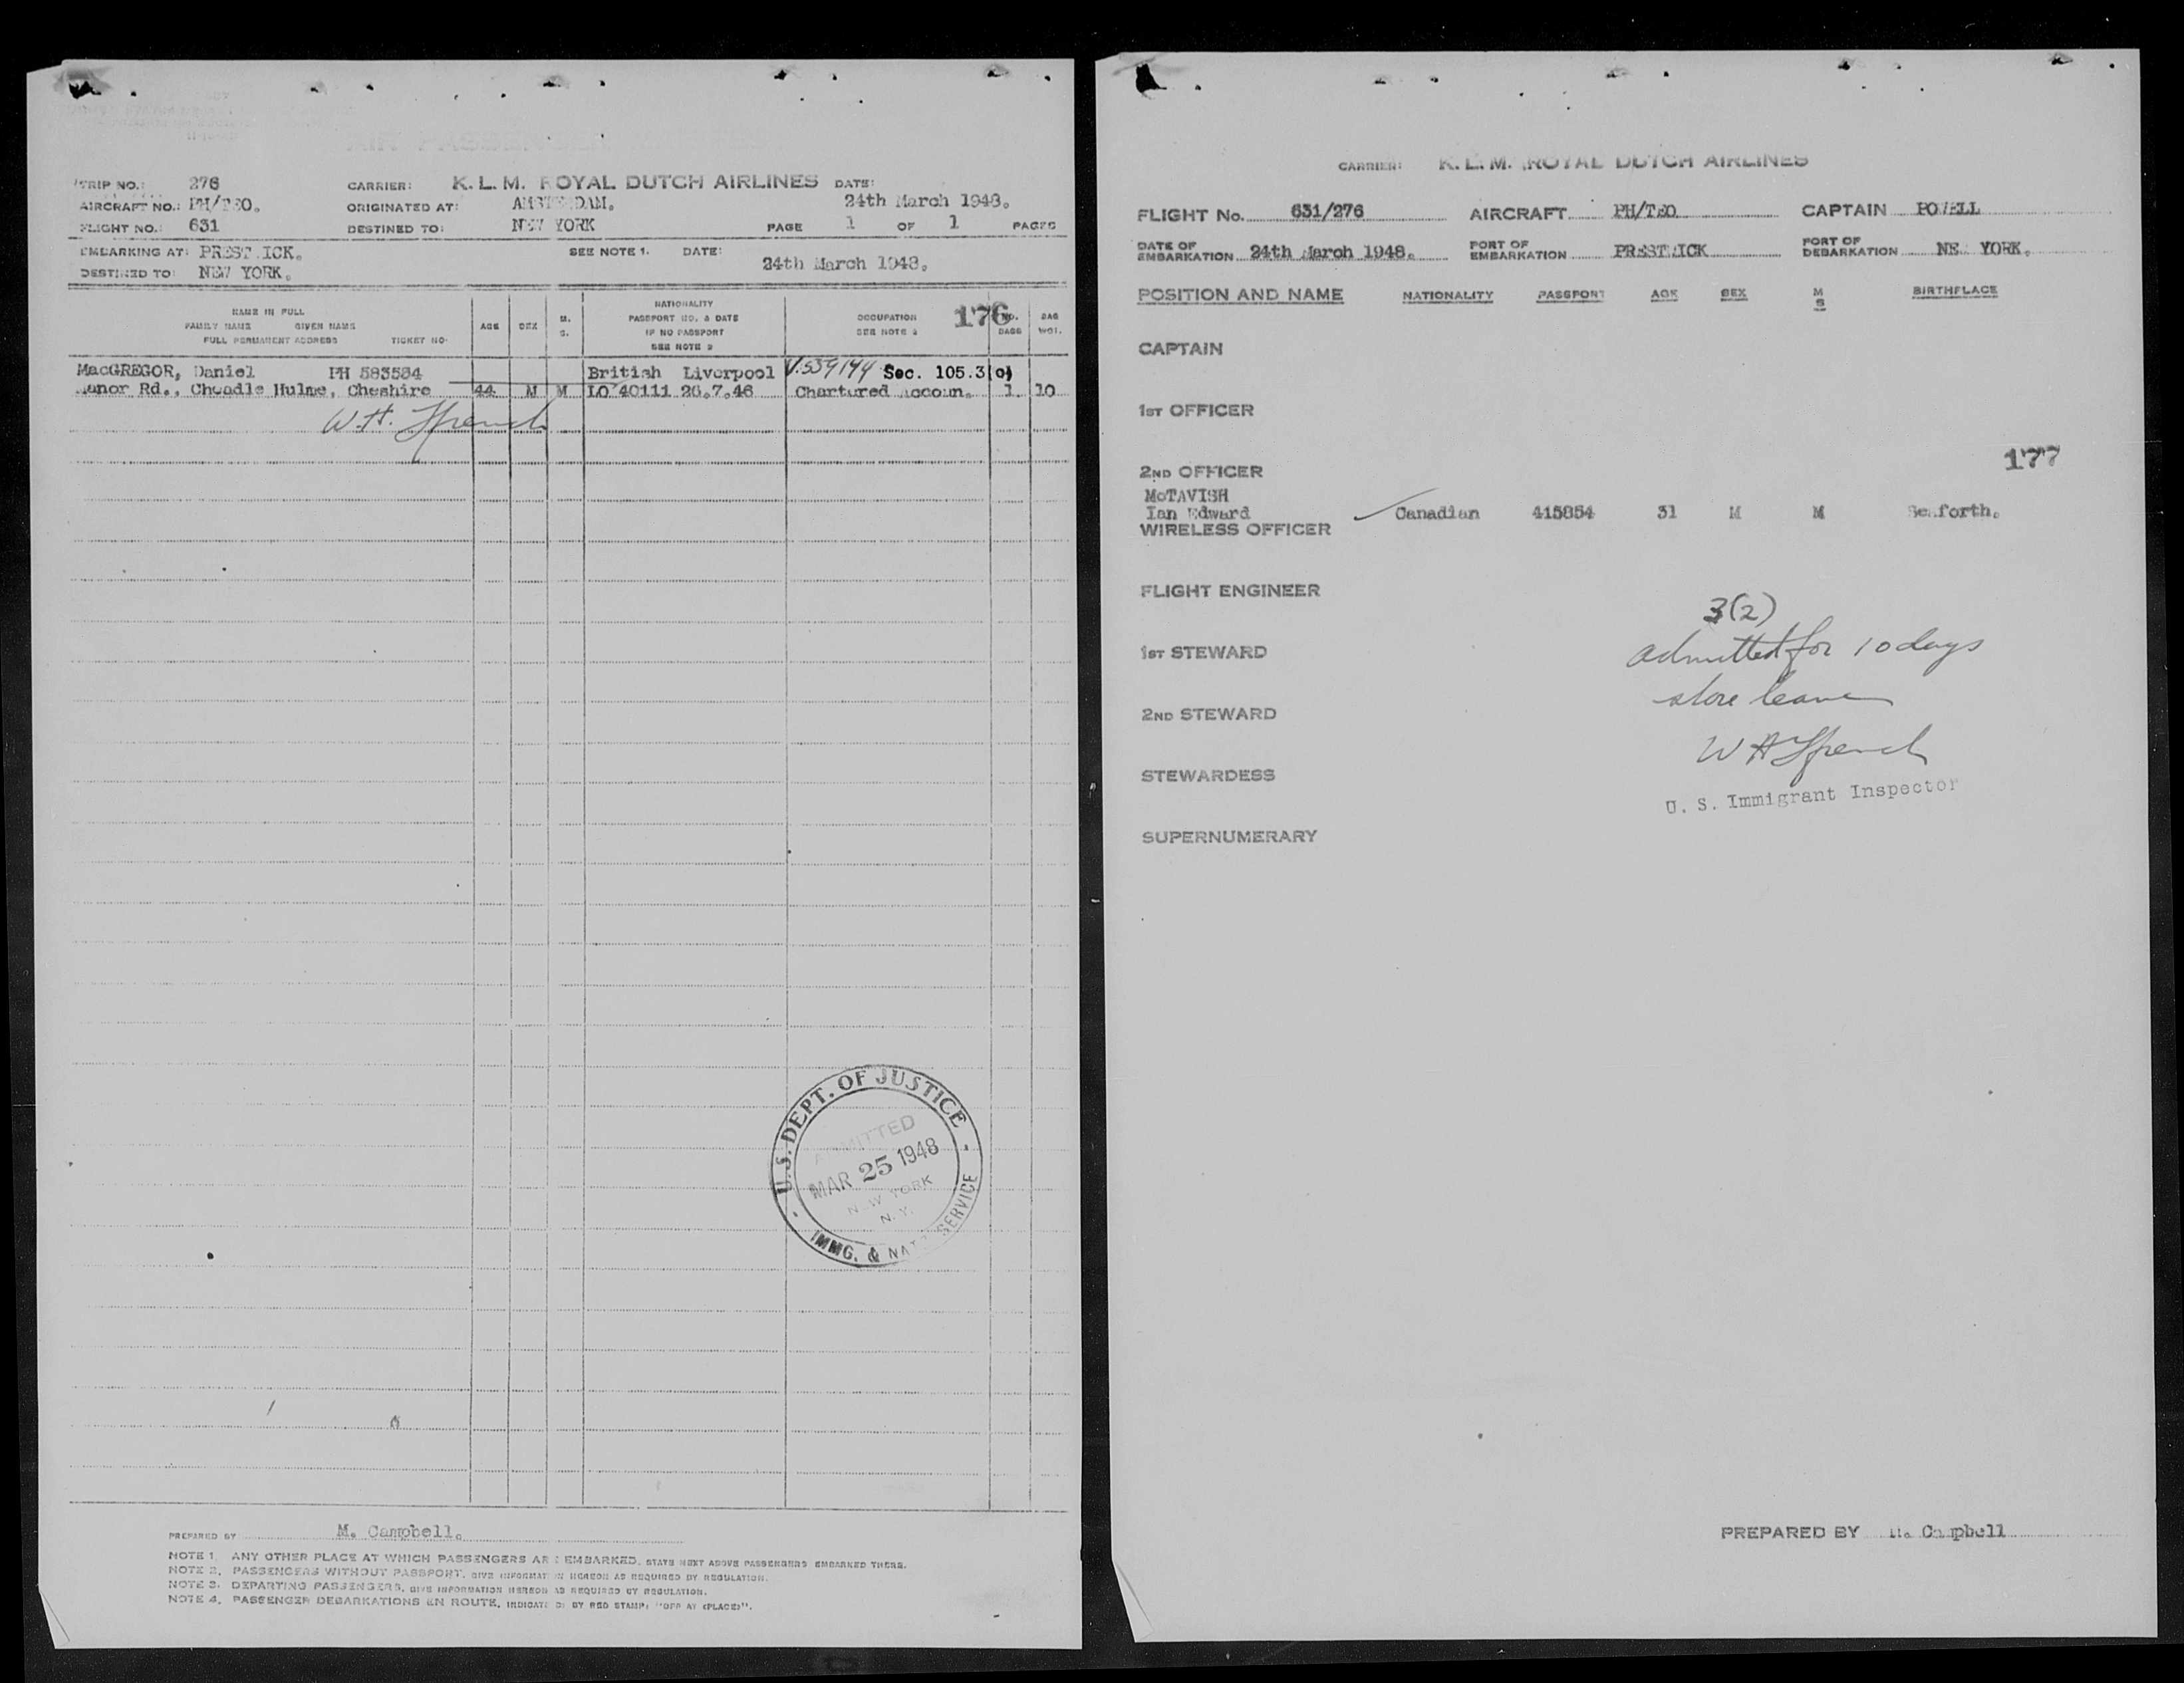 TRIP NO.: 276 CARRIER: K. L. M. ROYAL DUTCH AIRLINES DATE:
AIRCRAFT NO.: PH/TEO. ORIGINATED AT: AMSTERDAM. 24th March 1948.
FLIGHT NO.: 631 DESTINED TO: NEW YORK PAGE 1 OF 1 PAGES
EMBARKING AT: PRESTWICK. SEE NOTE 1. DATE:
DESTINED TO: NEW YORK. 24th March 1948.
176
NAME IN FULL
FAMILY NAME GIVEN NAME
FULL PERMANENT ADDRESS TICKET NO.
AGE SEX M. S.
NATIONALITY
PASSPORT NO. & DATE
IF NO PASSPORT
SEE NOTE 2
OCCUPATION
NO. BAGS
BAG WGT.
MacGREGOR, Daniel PH 583584 British Liverpool Sec. 105.3
Manor Rd., Cheadle Hulme, Cheshire 44 M M LO 40111 26.7.46 Chartured Accoun. 1 10
W. H.
U.S. DEPT. OF JUSTICE
ADMITTED
MAR 25 1948
NEW YORK
N. Y.
IMMG. & NAT. SERVICE
PREPARED BY M. Campbell.
NOTE 1. ANY OTHER PLACE AT WHICH PASSENGERS ARE EMBARKED, STATE NEXT ABOVE PASSENGERS EMBARKED THERE.
NOTE 2. PASSENGERS WITHOUT PASSPORT, GIVE INFORMATION HEREON AS REQUIRED BY REGULATION.
NOTE 3. DEPARTING PASSENGERS, GIVE INFORMATION HEREON AS REQUIRED BY REGULATION.
NOTE 4. PASSENGER DEBARKATIONS EN ROUTE, INDICATED BY RED STAMP: "OFF AT (PLACE)".
CARRIER: K. L. M. ROYAL DUTCH AIRLINES
FLIGHT No. 631/276 AIRCRAFT PH/TEO CAPTAIN POWELL
DATE OF EMBARKATION 24th March 1948. PORT OF EMBARKATION PRESTWICK PORT OF DEBARKATION NEW YORK.
POSITION AND NAME NATIONALITY PASSPORT AGE SEX M S BIRTHPLACE
CAPTAIN
1ST OFFICER
177
2ND OFFICER
McTAVISH
Ian Edward Canadian 415854 31 M M Seaforth.
WIRELESS OFFICER
FLIGHT ENGINEER
3(2)
admitted for 10 days
1ST STEWARD
shore leave
2ND STEWARD
W H
STEWARDESS
U. S. Immigrant Inspector
SUPERNUMERARY
PREPARED BY M. Campbell